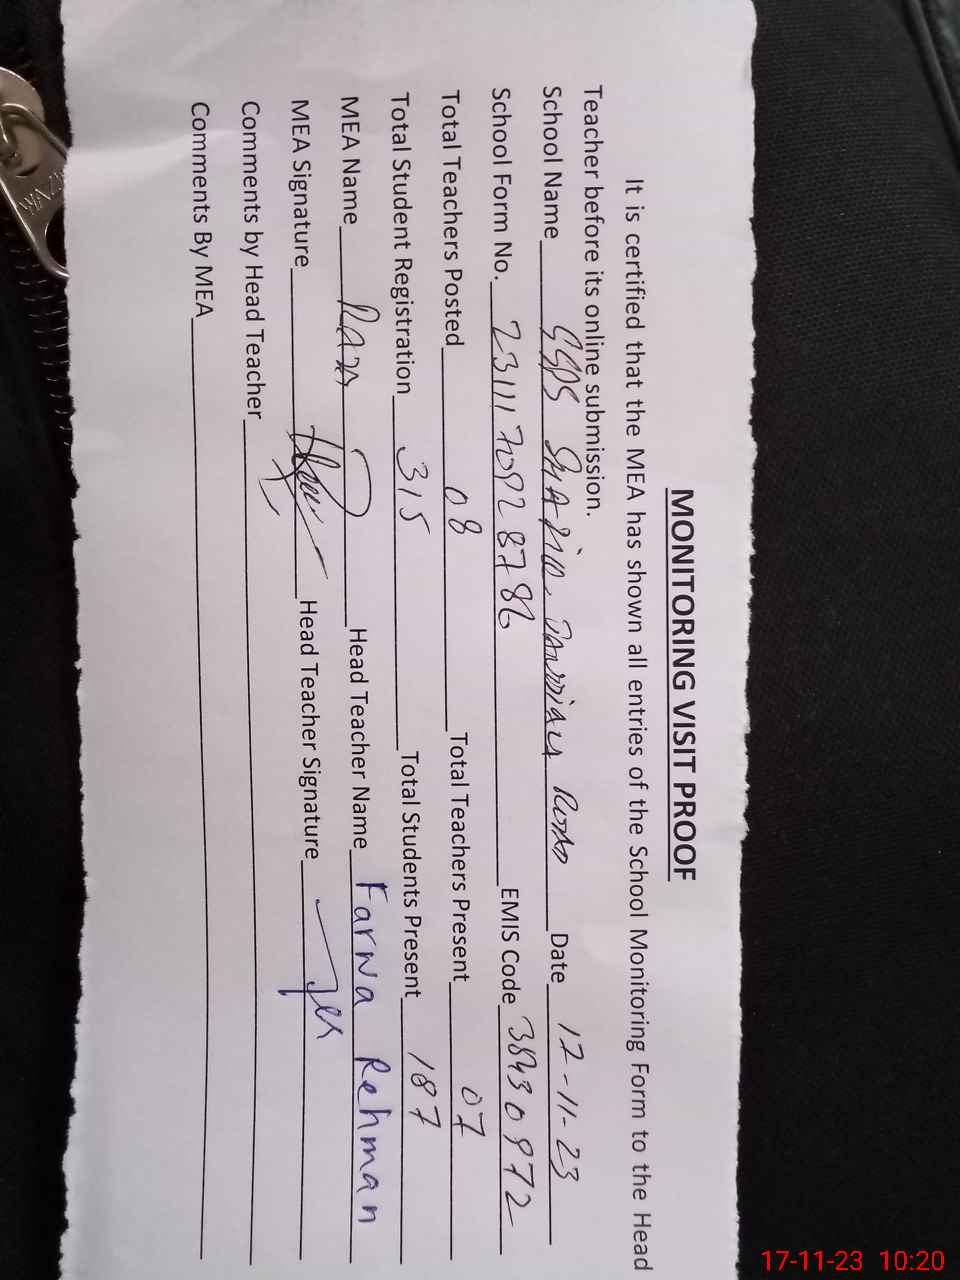 MONITORING VISIT PROOF
It is certified that the MEA has shown all entries of the School Monitoring Form to the Head
Teacher before its online submission.
School Name Road Date 17-11-23
School Form No. EMIS Code 38430972
Total Teachers Posted 08 Total Teachers Present 07
Total Student Registration 315 Total Students Present 187
MEA Name Head Teacher Name Farwa Rehman
MEA Signature Head Teacher Signature
Comments by Head Teacher
Comments By MEA
17-11-23 10:20